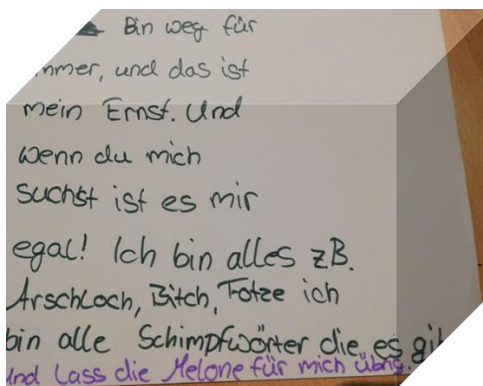 Bin weg für
mmer, und das ist
mein Ernst. Und
wenn du mich
suchst ist es mir
egal! Ich bin alles zB.
Arschloch, Bitch, Fotze ich
bin alle Schimpfwörter die es gib
und lass die Melone für mich übrig.